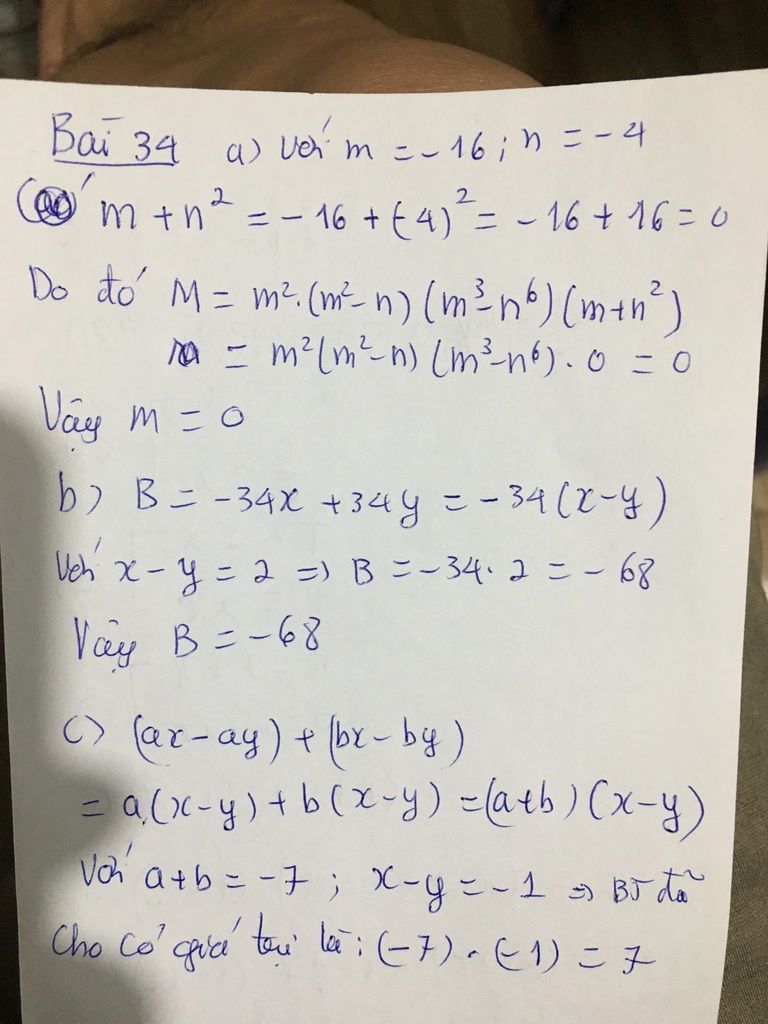 Bài 34 a) Với m = -16; n = -4
Có m + n² = -16 + (-4)² = -16 + 16 = 0
Do đó M = m².(m²-n)(m³-n⁶)(m+n²)
= m²(m²-n)(m³-n⁶).0 = 0
Vậy m = 0
b) B = -34x + 34y = -34(x-y)
Với x-y = 2 => B = -34.2 = -68
Vậy B = -68
c) (ax-ay) + (bx-by)
= a(x-y) + b(x-y) = (a+b)(x-y)
Với a+b = -7; x-y = -1 => BT đã
Cho có giá trị là: (-7).(-1) = 7